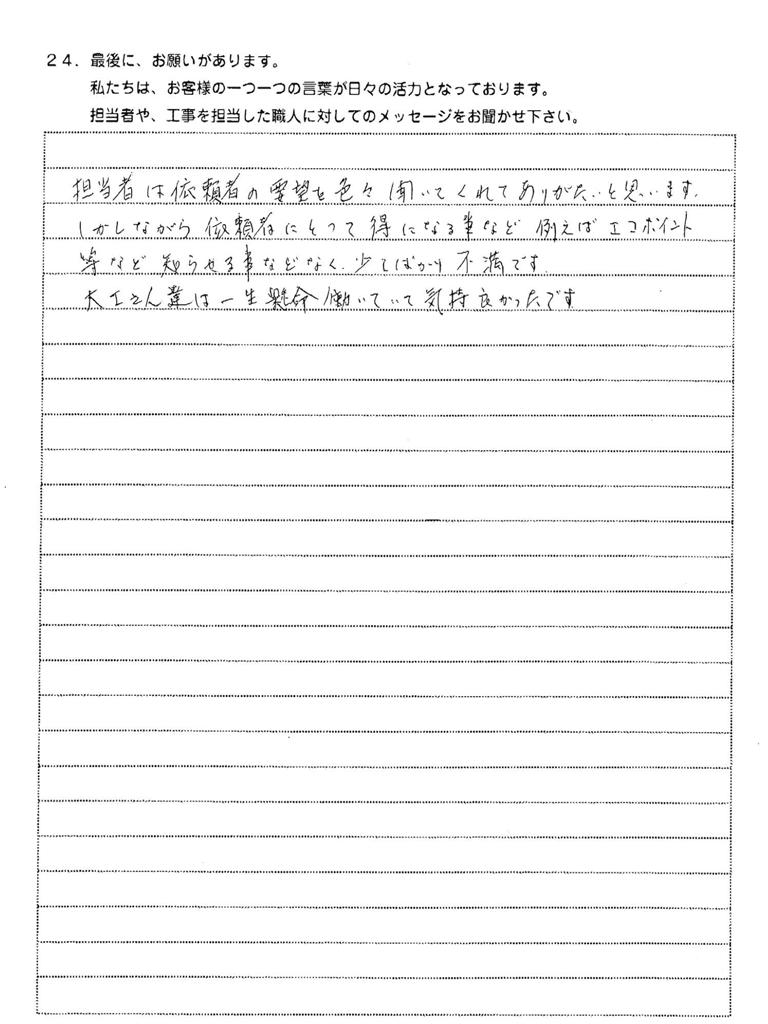 24. 最後に、お願いがあります。
私たちは、お客様の一つ一つの言葉が日々の活力となっております。
担当者や、工事を担当した職人に対してのメッセージをお聞かせ下さい。
担当者は依頼者の要望を色々聞いてくれてありがたいと思います.
しかしながら 依頼者にとって得になる事など 例えば エコポイント
等など 知らせる事などなく、少しばかり 不満です.
大工さん達は一生懸命働いていて気持良かったです